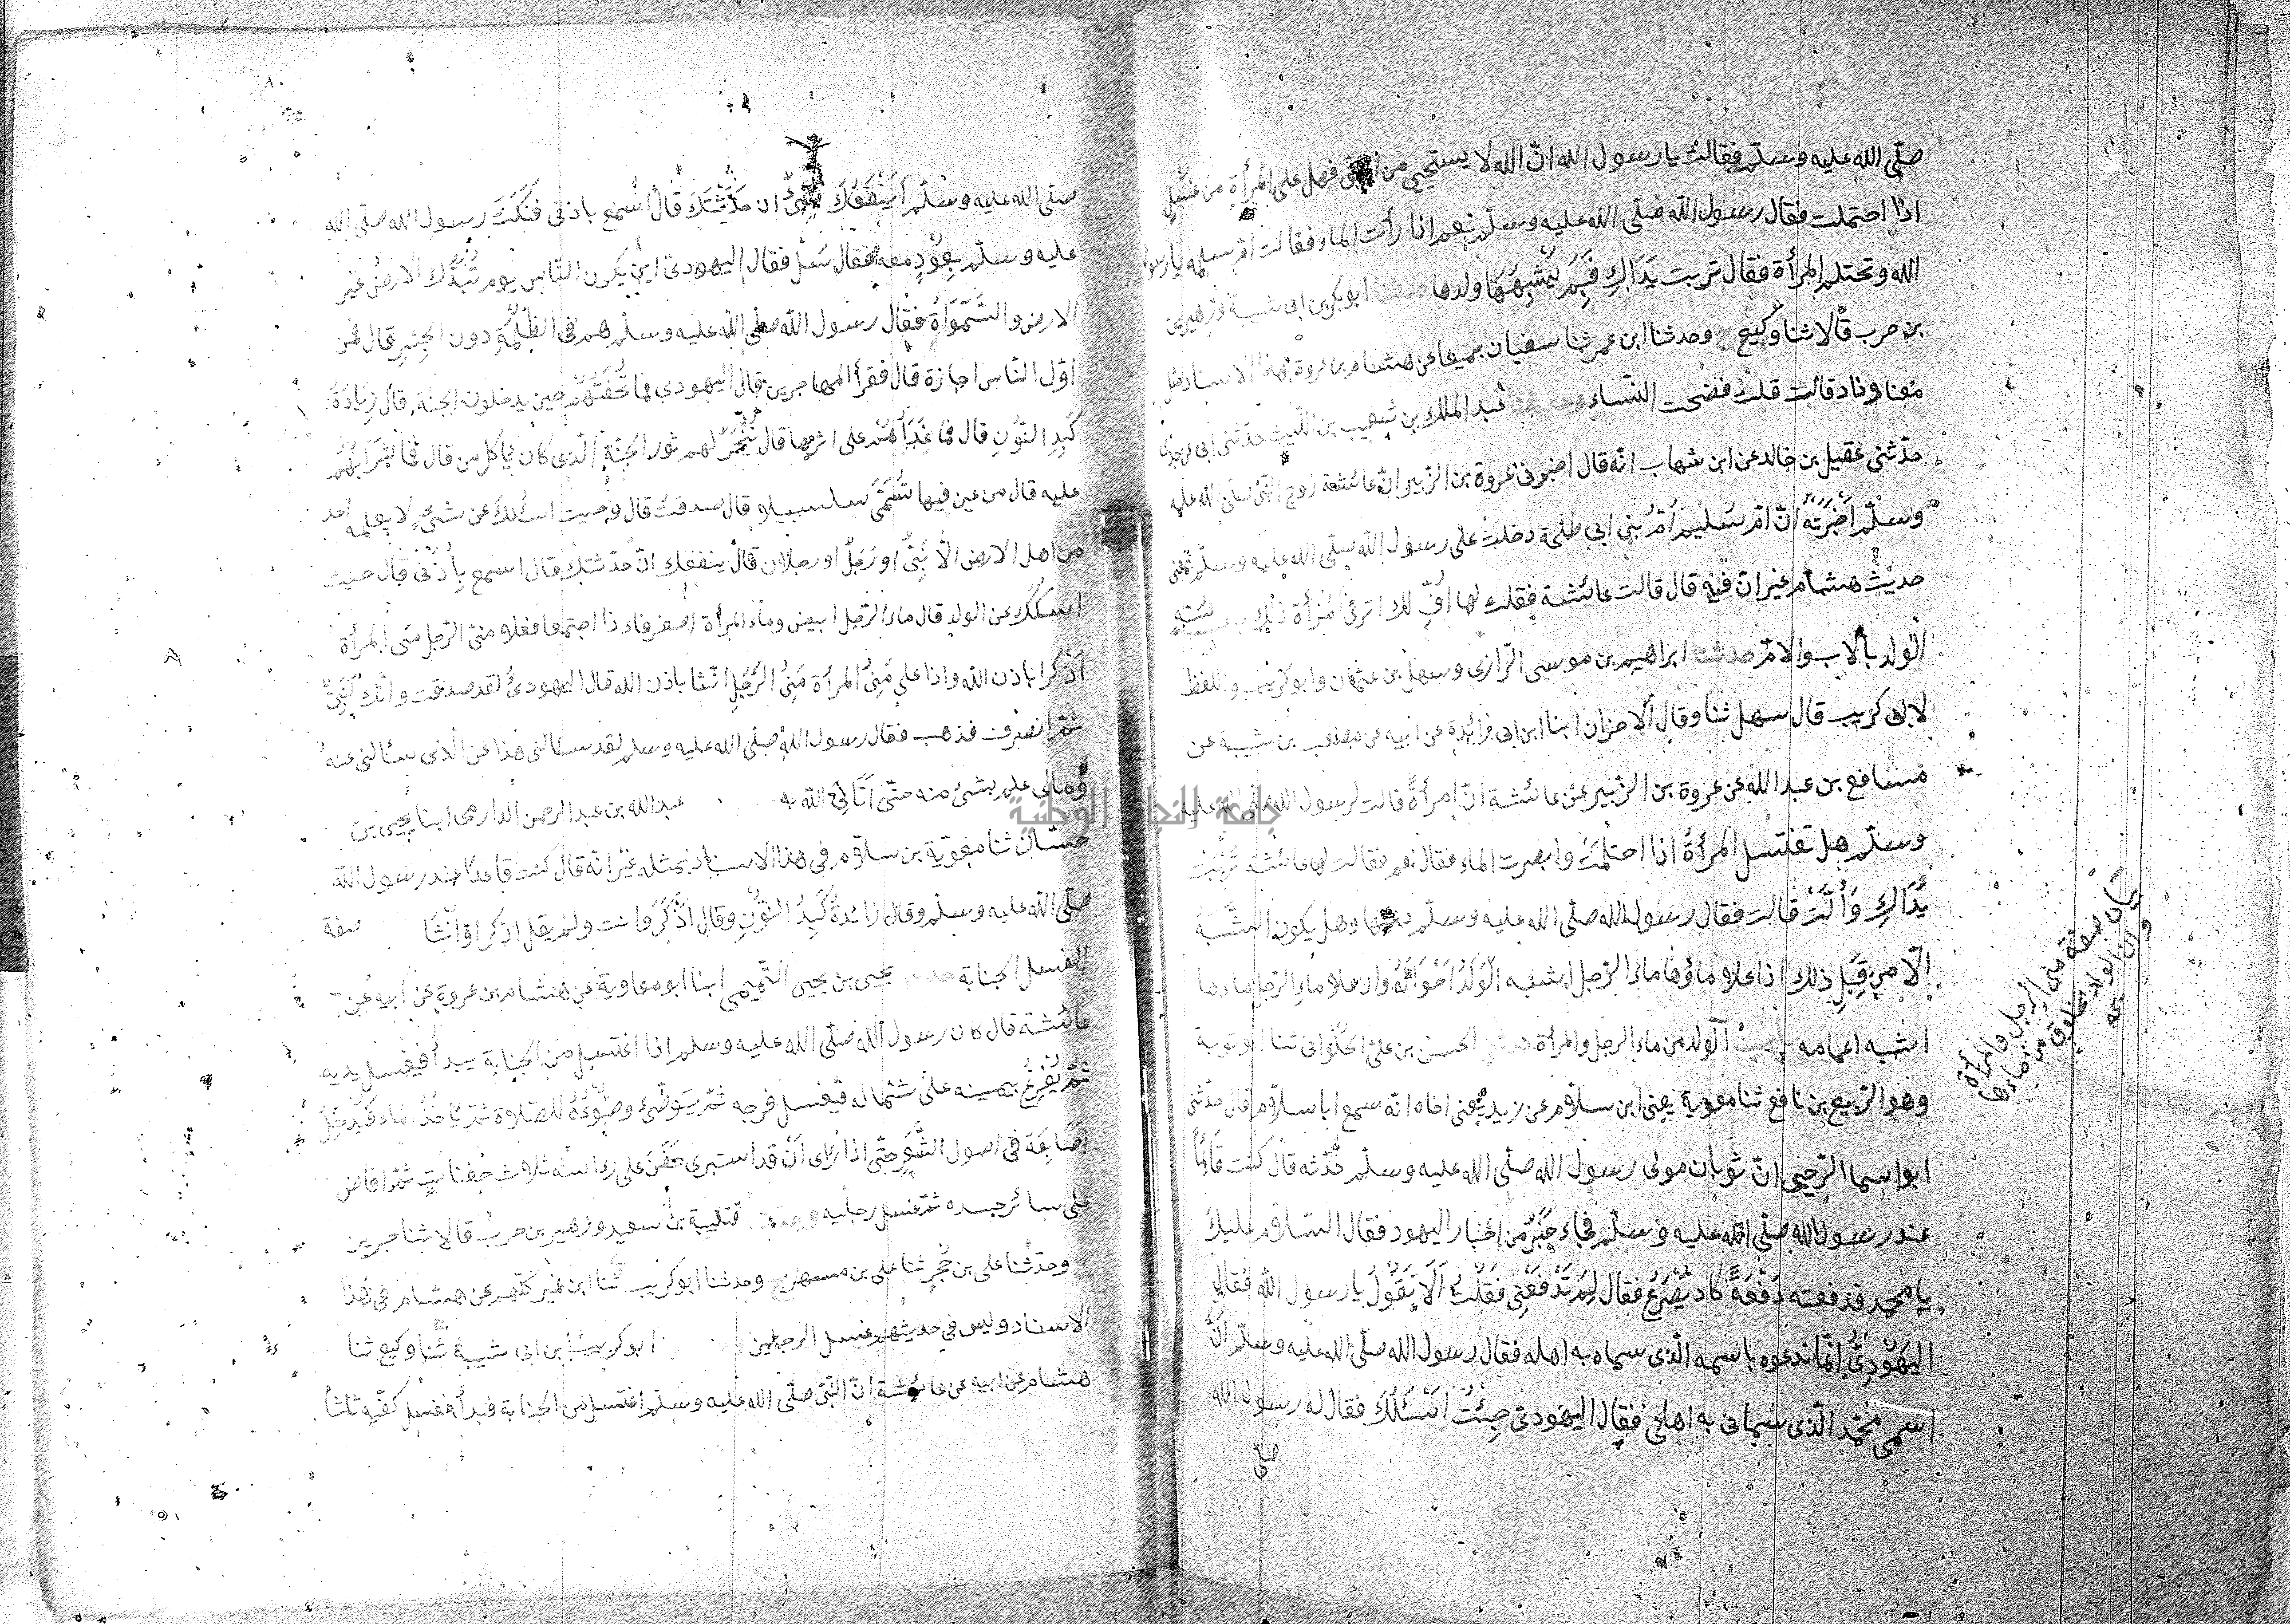 صلّى الله عليه وسلّم فقالت يا رسول الله انّ الله لا يستحيي من الحق فهل على المرأة من غسل
اذا احتملت فقال رسول الله صلّى الله عليه وسلّم نعم اذا رأت الماء فقالت امّ سلمة يا رسول
الله وتحتلم المرأة فقال تربت يَدَاكِ فَبِمَ يُشْبِهُهَا ولدها حدثنا ابو بكر بن ابى شيبة وزهير بن
بن حرب قالا ثنا وكيع ح وحدثنا ابن عمر ثنا سفيان جميعا عن هشام بن عروة بهذا الاسناد مثل
معناه وزاد قالت قلت فضحت النّساء وحدثنا عبد الملك بن شعيب بن اللّيث حدّثنى ابى عن جدّى
حدّثنى عقيل بن خالد عن ابن شهاب انّه قال اخبرنى عروة بن الزّبير انّ عائشة زوج النّبىّ صلّى الله عليه
وسلّم أَخْبَرَتْهُ انّ امّ سُليم أمّ بنى ابى طلحة دخلت على رسول الله صلّى الله عليه وسلّم بمعنى
حديث هشام غير انّ فيه قال قالت عائشة فقلت لها أُفٍّ لك اترى المرأة ذلك لشبه
الولد بالاب والامّ حدثنا ابراهيم بن موسى الرّازى وسهل بن عثمان وابو كريب واللفظ
لابى كريب قال سهل ثنا وقال الاخران ابنا ابن ابى زائدة عن ابيه عن مصعب بن شيبة عن
مسافع بن عبد الله عن عروة بن الزّبير عن عائشة انّ امرأةً قالت لرسول الله صلى الله عليه
وسلّم هل تغتسل المرأةُ اذا احتلمَتْ وابصرت الماء فقال نعم فقالت لها عائشة تَرِبَتْ
يَدَاكِ وَأُلَّتْ قالت فقال رسول الله صلّى الله عليه وسلّم دعيها وهل يكون الشّبَهُ
الّا من قِبَلِ ذلك اذا علا ماؤها ماء الرّجل اشبه الولدُ اخوالَهُ واذ علا ماء الرّجل ماءها
اشبه اعمامه الولد من ماء الرجل والمرأة حدثنى الحسن بن علىّ الحُلْوانى ثنا ابو توبة
وهو الرّبيع بن نافع ثنا معوية يعنى ابن سلّام عن زيد يعنى اخاه انّه سمع ابا سلّام قال حدّثنى
ابو اسما الرّحبى انّ ثوبان مولى رسول الله صلّى الله عليه وسلّم حَدّثه قال كنت قائماً
عند رسول الله صلّى الله عليه وسلّم فجاء حَبْرٌ من احبار اليهود فقال السّلام عليك
يا محمد فدفعته دَفْعَةً كاد يُصْرَعُ فقال لِمَ تَدْفَعُنِى فقلْتُ أَلَا تَقُولُ يا رسول الله فقال
اليهُودىُّ انّما ندعوه باسمه الّذى سماه به اهله فقال رسول الله صلّى الله عليه وسلّم انّ
اسمى محمّد الّذى سمانى به اهلى فقال اليهودىّ جِئتُ اَسْئَلُكَ فقال له رسول الله
صلّى
بيان صفة منى الرجل والمرأة
وان الولد مخلوق من ماءهما
٨٠
صلّى الله عليه وسلّم أَيَنْفَعُكَ شىءٌ ان حَدَّثْتُكَ قال اسمع باذنى فَنَكَتَ رسول الله صلّى الله
عليه وسلّم بِعُوْدٍ معه فقال سَلْ فقال اليهودىّ اين يكون النّاس يوم تُبَدَّل الارضُ غير
الارض والسَّمَوَاةُ فقال رسول الله صلى الله عليه وسلّم هم فى الظّلْمَةِ دون الجِسْرِ قال فمن
اوّل النّاس اجازة قال فقرأ المهاجرين قال اليهودى فما تُحْفَتُهُمْ حين يدخلون الجنّة قال زِيَادَةُ
كَبِدِ النُّوْنِ قال فما غَدَأهُمْ على اثرها قال يُنْحَرُ لهم ثور الجنّة الّذى كان ياكل من قال فما شَرَابُهُم
عليه قال من عين فيها تُسَمّى سلسبيلا قال صدقت قال وجيت اسئلك عن شىءٍ لا يعلمه احد
من اهل الارض الّا نَبِىٌّ او رَجُلٌ او رجلان قال ينفعك انّ حدثتك قال اسمع بِأُذُنى قال جئت
اسئلك عن الولد قال ماء الرّجل ابيض وماء المرأة اصفر فاذا اجتمعا فعلا منىّ الرّجل منى المرأة
أَذْكرا باذن الله واذا على مَنِىُّ المرأة مَنِىَّ الرَّجُلِ انّثا باذن الله قال اليهودىُّ لقد صدقت وانّك لَنَبِىٌّ
ثمّ انصرف فذهب فقال رسول اللهُ صلّى الله عليه وسلم لقد سئالنى هذا عن الّذى سئالنى عنه
ومالى علم بشئ منه حتى أَتَانِىَ الله عبد الله بن عبد الرحمن الدارمى ابنا يحيى بن
حسّان ثنا معوية بن سلّام فى هذا الاسناد بمثله غير انّه قال كنت قاعدًا عند رسول الله
صلّى الله عليه وسلم وقال زائدةُ كَبِدِ النُّوْنِ وقال اَذْكَرَ وانت ولم يقل اذكرا وأنثا صفة
الغسل الجنابة حدثنا يحيى بن يحيى التّميمى ابنا ابو معاوية عن هشام بن عروة عن ابيه عن
عائشة قال كان رسول الله صلّى الله عليه وسلم اذا اغتسل من الجنابة يبدأ فيغسل يديه
ثمّ يُفْرِغُ بيمينه على شماله فيغسل فرجه ثمّ يتوضّى وضوءَهُ للصّلاة ثمّ ياخُذُ الماء فيُدخِلُ
اصَابِعَهُ فى اصول الشَّعَرِ حتّى اذا رَاى أَنْ قد استبرى حَفَنَ على راسه ثلاث حفناتٍ ثمّ افاض
على سائر جسده ثمّ غسل رجليه وحدثنا قتيبة بن سعيد وزهير بن حرب قالا ثنا جرير
ح وحدّثنا على بن حُجْرٍ ثنا على بن مسهر ح وحدثنا ابو كريب ثنا ابن نمير كلّهم عن هشام فى هذا
الاسناد وليس فى حديثهم غسل الرجلين ابو كر بن ابى شيبة ثنا وكيع ثنا
هشام عن ابيه عن عائشة انّ النّبىّ صلّى الله عليه وسلّم اغتسل من الجنابة فبدأ فغسل كفّيه ثلثاً
جامعة النجاح الوطنية